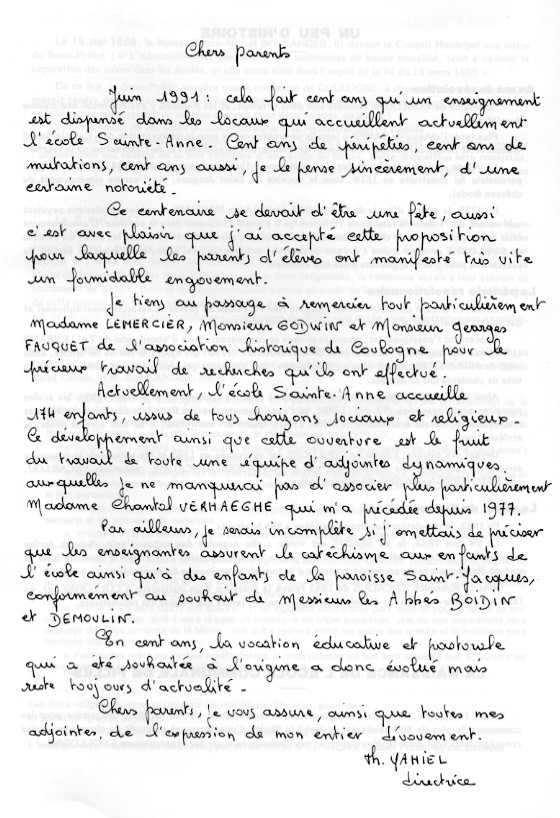 Chers parents
Juin 1991 : cela fait cent ans qu'un enseignement
est dispensé dans les locaux qui accueillent actuellement
l'école Sainte-Anne. Cent ans de péripéties, cent ans de
mutations, cent ans aussi, je le pense sincèrement, d'une
certaine notoriété.
Ce centenaire se devait d'être une fête, aussi
c'est avec plaisir que j'ai accepté cette proposition
pour laquelle les parents d'élèves ont manifesté très vite
un formidable engouement.
Je tiens au passage à remercier tout particulièrement
Madame LEMERCIER, Monsieur GODWIN et Monsieur Georges
FAUQUET de l'association historique de Coulogne pour le
précieux travail de recherches qu'ils ont effectué.
Actuellement, l'école Sainte-Anne accueille
174 enfants, issus de tous horizons sociaux et religieux.
Ce développement ainsi que cette ouverture est le fruit
du travail de toute une équipe d'adjointes dynamiques
auxquelles je ne manquerai pas d'associer plus particulièrement
Madame Chantal VERHAEGHE qui m'a précédée depuis 1977.
Par ailleurs, je serais incomplète si j'omettais de préciser
que les enseignantes assurent le catéchisme aux enfants de
l'école ainsi qu'à des enfants de la paroisse Saint-Jacques,
conformément au souhait de Messieurs les Abbés BOIDIN
et DEMOULIN.
En cent ans, la vocation éducative et pastorale
qui a été souhaitée à l'origine a donc évolué mais
reste toujours d'actualité -
Chers parents, je vous assure, ainsi que toutes mes
adjointes, de l'expression de mon entier dévouement.
Th. YAHIEL
directrice